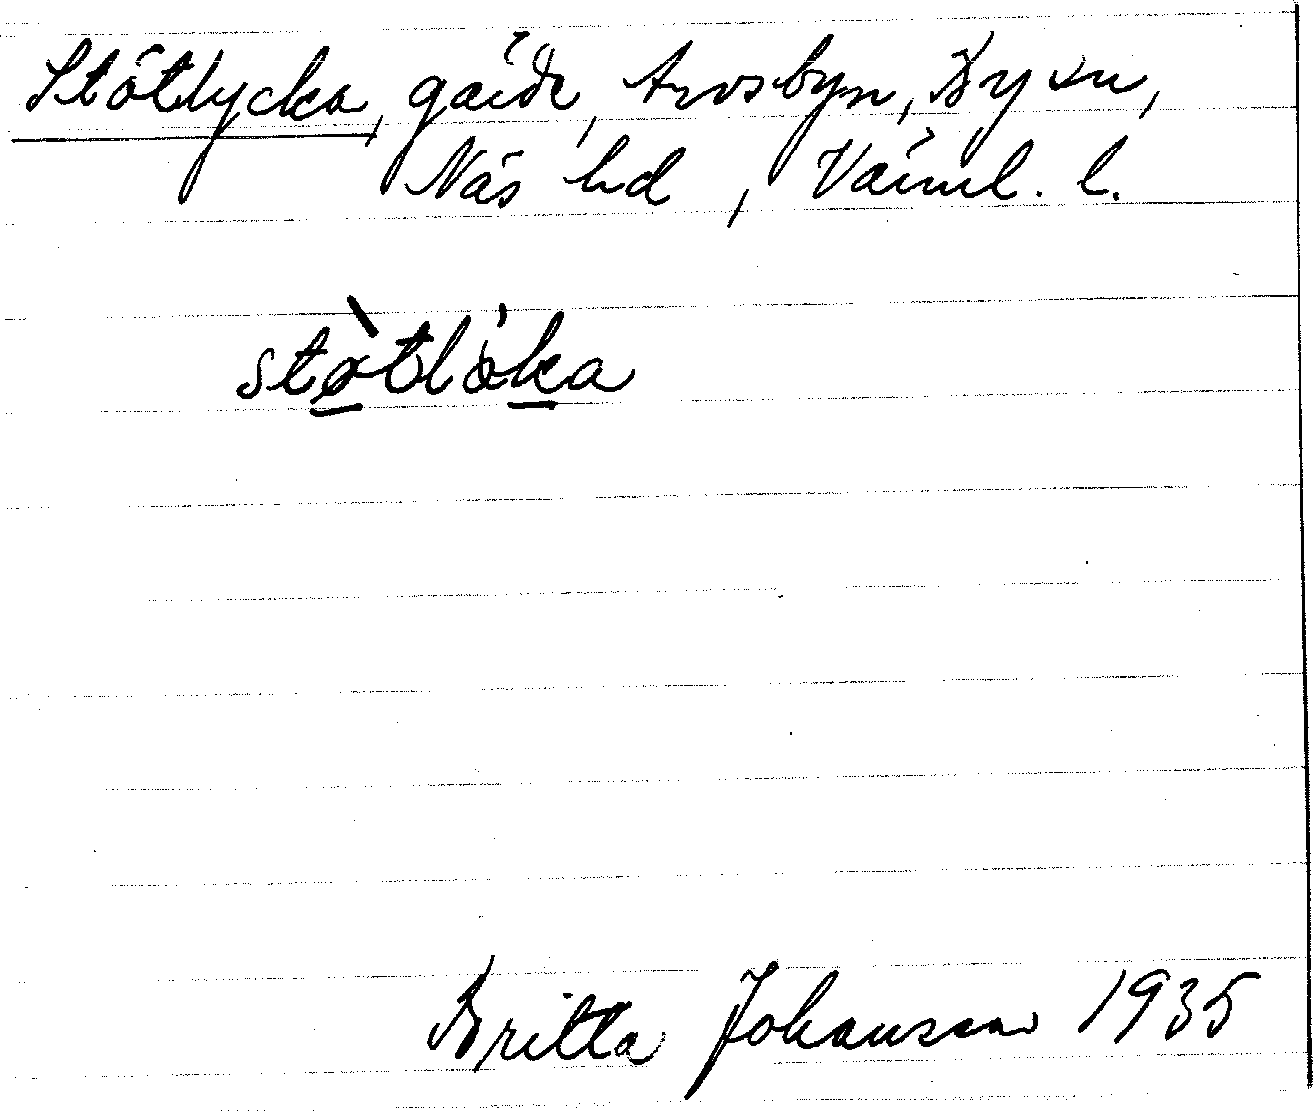 Stötlycka, gärde, Arosbyn, By sn,
Näs hd, Värml. l.
stø̀tlöka
Britta Johansson 1935